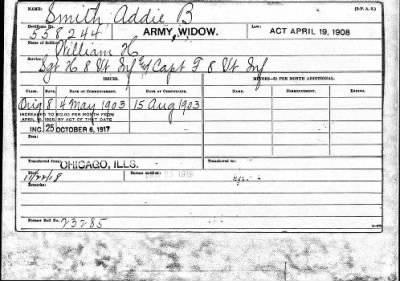 NAME: Smith Addie B (3-P. A. 2.)
Certificate No. 558244 ARMY, WIDOW. Law: ACT APRIL 19, 1908
Name of Soldier: William H
Service: Sgt H 8 Vt Inf and Capt F 8 Vt Inf
ISSUES. MINORS—$2 PER MONTH ADDITIONAL.
CLASS. RATE. DATE OF COMMENCEMENT. DATE OF CERTIFICATE. NAME. COMMENCING. ENDING.
Orig 8 4 May 1903 15 Aug 1903
INCREASED TO $12.00 PER MONTH FROM
APRIL 19, 1908, BY ACT OF THAT DATE
INC. 25 OCTOBER 6, 1917
Transferred from: CHICAGO, ILLS. Transferred to:
Remarks:
Former Roll No. 23285